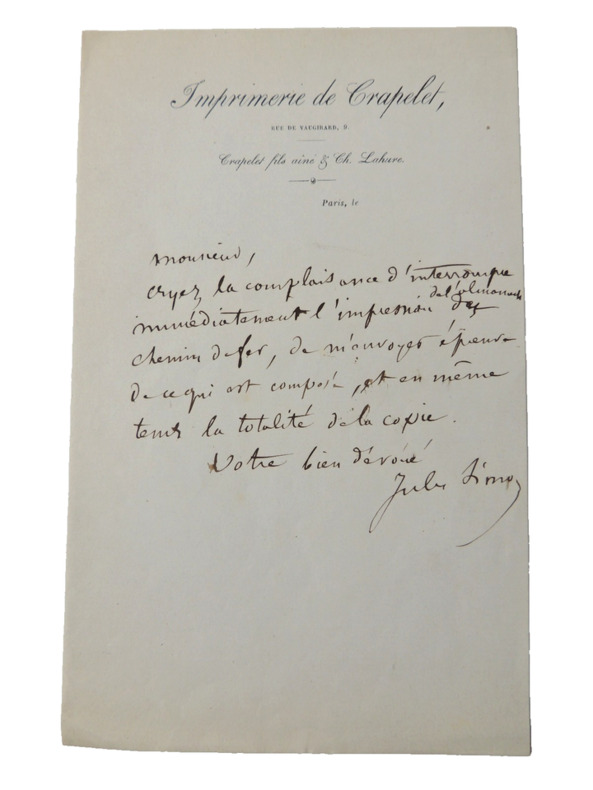 Imprimerie de Crapelet,
RUE DE VAUGIRARD, 9
Crapelet fils aîné & Ch. Lahure.
Paris, le
Monsieur,
ayez la complaisance d'interrompre
immédiatement l'impression de l'almanach des
chemin de fer, de m'envoyer épreuve
de ce qui est composé, et en même
tems la totalité de la copie.
Votre bien dévoué
Jules Simon